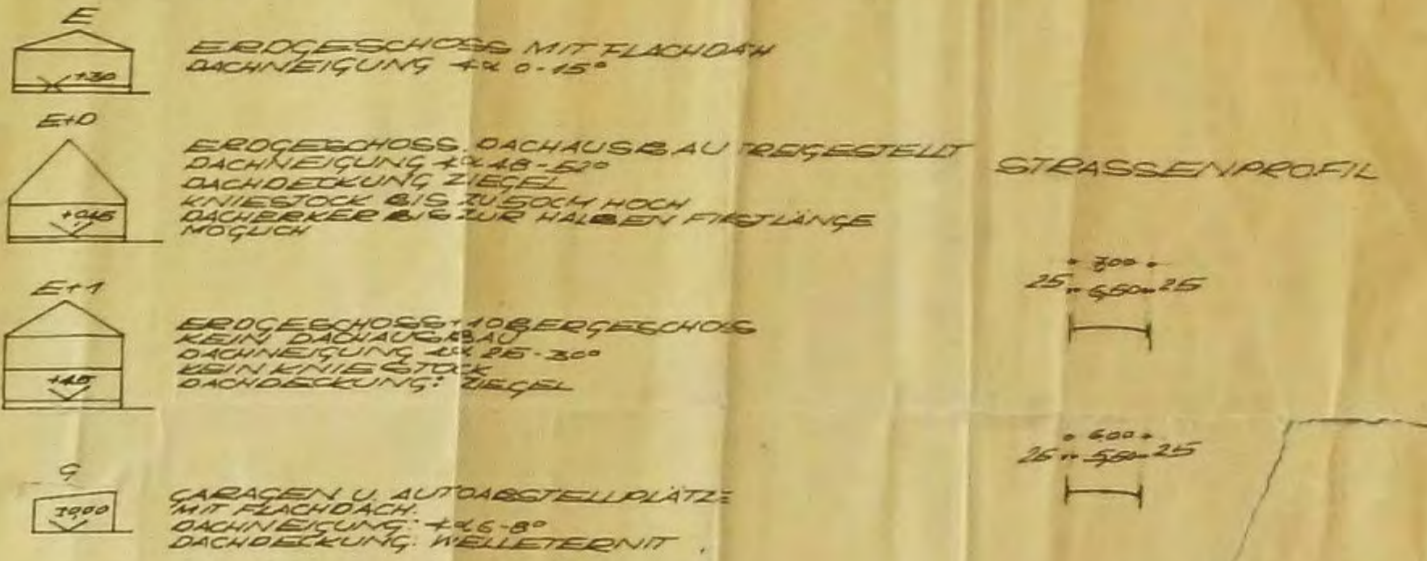 E
+30
ERDGESCHOSS MIT FLACHDACH
DACHNEIGUNG ∢α 0-15°
E+D
+0,45
ERDGESCHOSS, DACHAUSBAU FREIGESTELLT
DACHNEIGUNG ∢α 48-52°
DACHDECKUNG ZIEGEL
KNIESTOCK BIS ZU 50CM HOCH
DACHERKER BIS ZUR HALBEN FIRSTLÄNGE
MÖGLICH
E+1
+45
ERDGESCHOSS+1OBERGESCHOSS
KEIN DACHAUSBAU
DACHNEIGUNG ∢α 25-30°
KEIN KNIESTOCK
DACHDECKUNG: ZIEGEL
G
±0,00
GARAGEN U. AUTOABSTELLPLÄTZE
MIT FLACHDACH.
DACHNEIGUNG: ∢α 6-8°
DACHDECKUNG: WELLETERNIT
STRASSENPROFIL
7,00
25 6,50 25
6,00
25 5,50 25